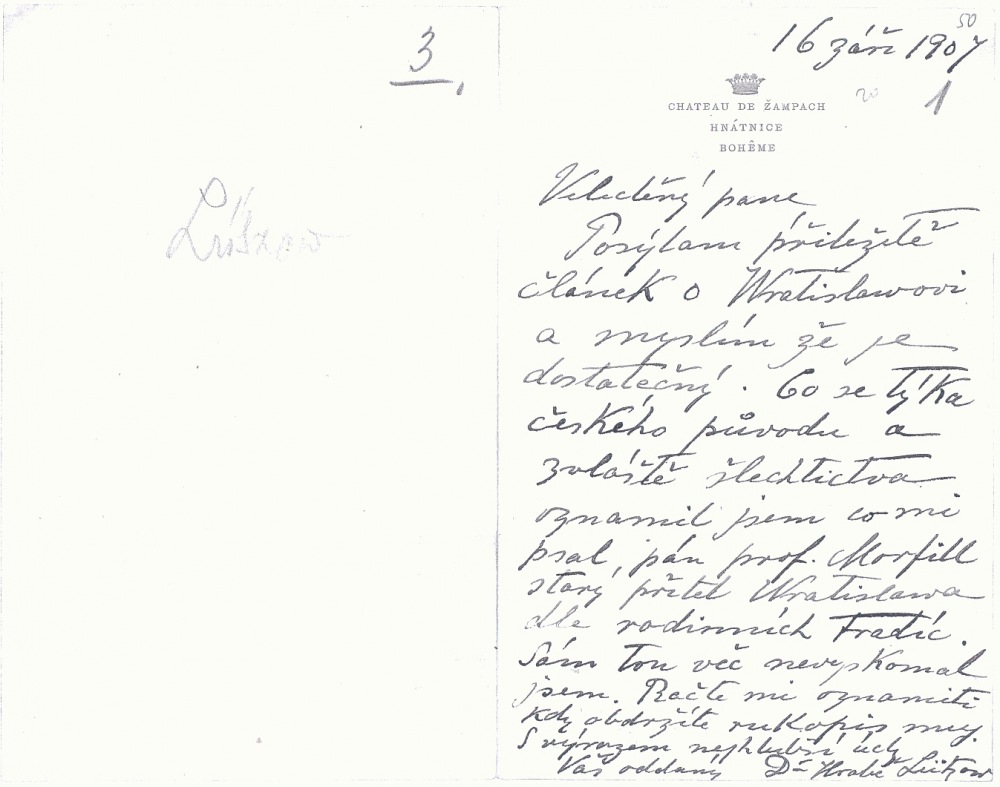 3
Lützow
50
16 září 1907
20
1
CHATEAU DE ŽAMPACH
HNÁTNICE
BOHÊME
Velectěný pane
Posýlam přiležitě
článek o Wratislawovi
a myslím že je
dostatečný. Co se týka
českého původu a
zvláště šlechtictva
oznamil jsem co mi
psal, pán prof. Morfill
starý přítel Wratislawa
dle rodinních tradic.
Sám tou věc nevyskomal
jsem. Račte mi oznamiti
kdy obdržíte rukopis muj.
S výrazem nejhlubší úcty
Váš oddaný Dr Hrabě Lützow